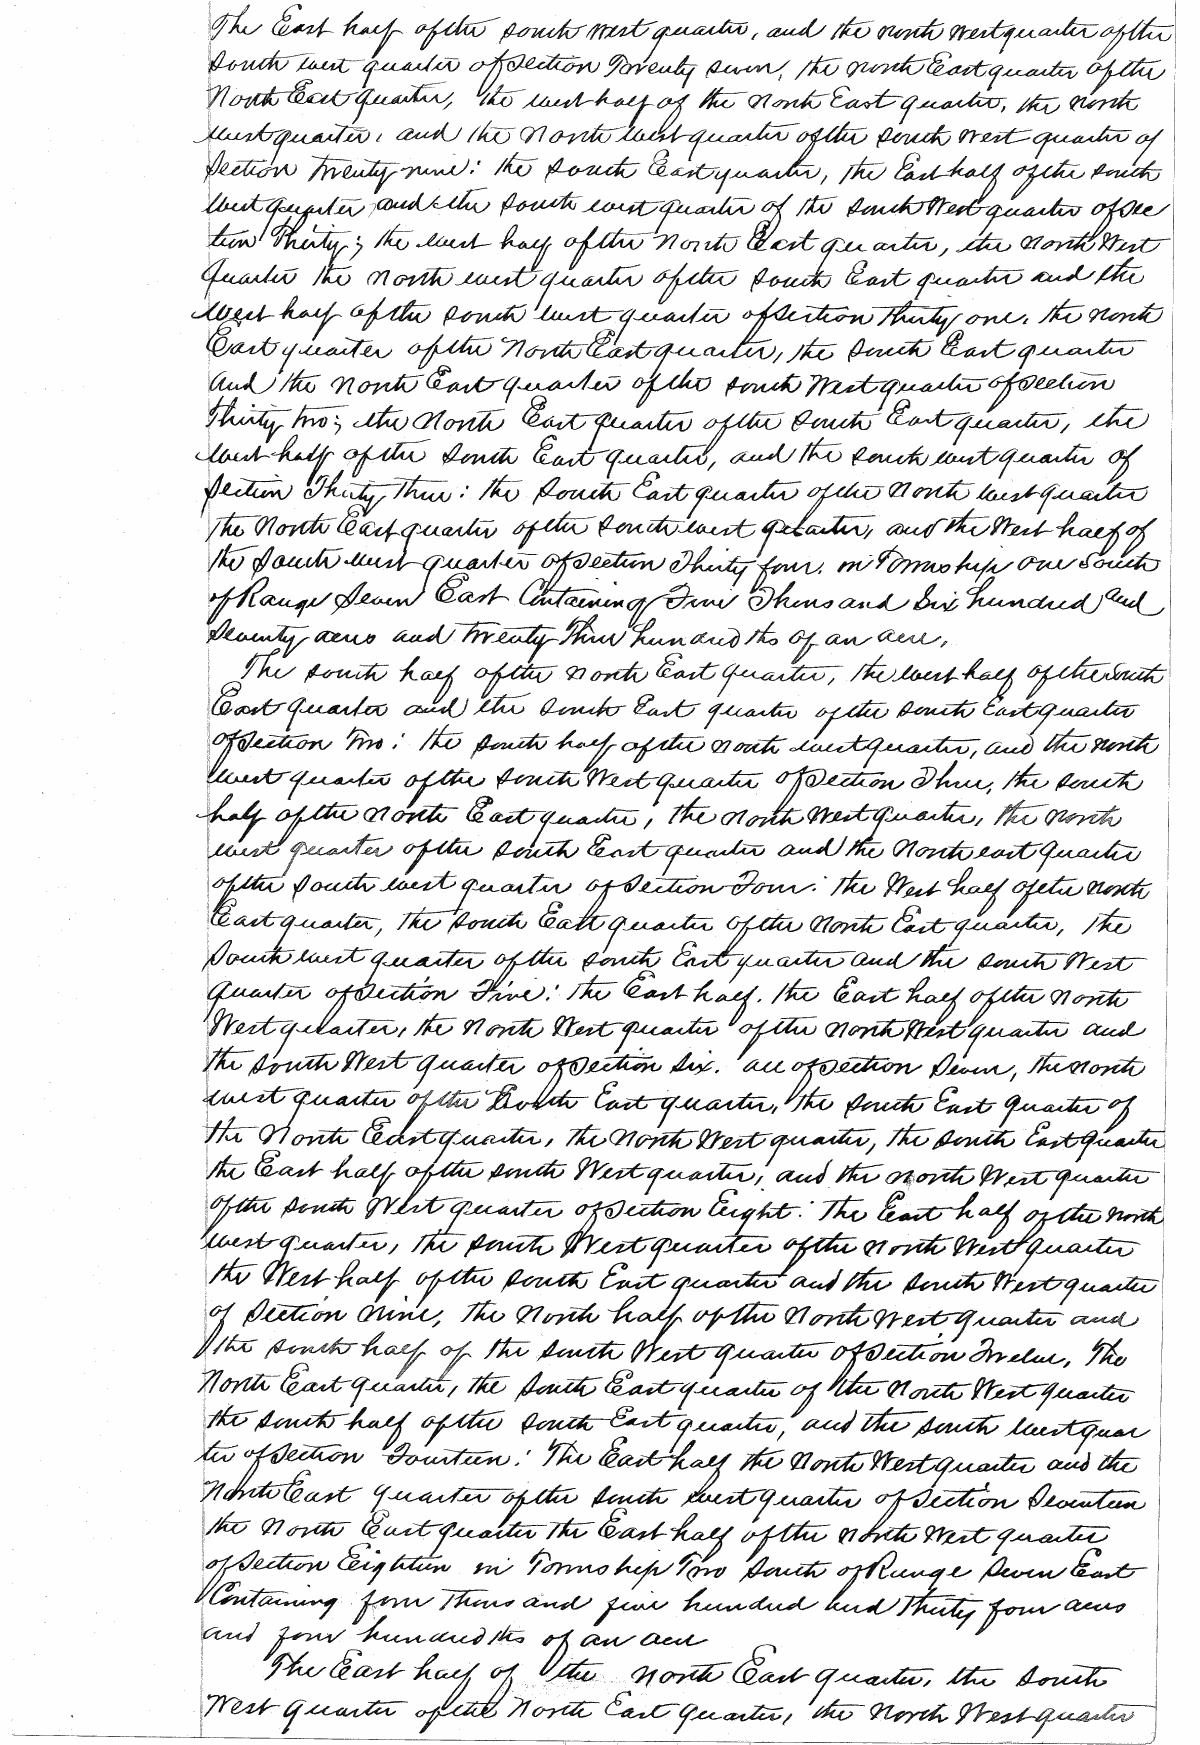 The East half of the South West quarter, and the North West quarter of the
South west quarter of Section Twenty seven, the North East quarter of the
North East quarter, the west half of the North East quarter, the North
west quarter, and the North west quarter of the South West quarter of
Section Twenty nine: the South East quarter, the East half of the South
west quarter and the South west quarter of the South West quarter of Sec
tion Thirty; the west half of the North East quarter, the North West
Quarter the North west quarter of the South East quarter and the
West half of the South west quarter of Section Thirty one. the North
East quarter of the North East quarter, the South East quarter
and the North East quarter of the South West quarter of Section
Thirty Two; the North East quarter of the South East quarter, the
West half of the South East quarter, and the South west quarter of
Section Thirty Three: the South East quarter of the North west quarter
the North East quarter of the South west quarter, and the West half of
the South west quarter of Section Thirty four. in Township one South
of Range Seven East Containing Five Thousand Six hundred and
Seventy acres and Twenty Three hundredths of an acre.
The South half of the North East quarter, the west half of the South
East quarter and the South East quarter of the South East quarter
of Section Two: the South half of the North west quarter, and the North
west quarter of the South West quarter of Section Three, the South
half of the North East quarter, the North West quarter, the North
west quarter of the South East quarter and the North east quarter
of the South west quarter of Section Four: the West half of the North
East quarter, the South East quarter of the North East quarter, the
South west quarter of the South East quarter and the South West
quarter of Section Five: the East half. the East half of the North
West quarter, the North West quarter of the North West quarter and
the South West quarter of Section Six. all of Section Seven, the North
west quarter of the North East quarter, the South East quarter of
the North East quarter, the North West quarter, the South East quarter
the East half of the South West quarter, and the North West quarter
of the South West quarter of Section Eight: The East half of the North
west quarter, the South West quarter of the North West quarter
the West half of the South East quarter and the South West quarter
of Section Nine, the North half of the North West quarter and
the South half of the South West quarter of Section Twelve, The
North East quarter, the South East quarter of the North West quarter
the South half of the South East quarter, and the South west quar
ter of Section Fourteen: The East half the North West quarter and the
North East quarter of the South west quarter of Section Seventeen
the North East quarter the East half of the North West quarter
of Section Eighteen in Township Two South of Range Seven East
Containing four Thousand five hundred and Thirty four acres
and four hundredths of an acre
The East half of the North East quarter, the South
West quarter of the North East quarter, the North West quarter